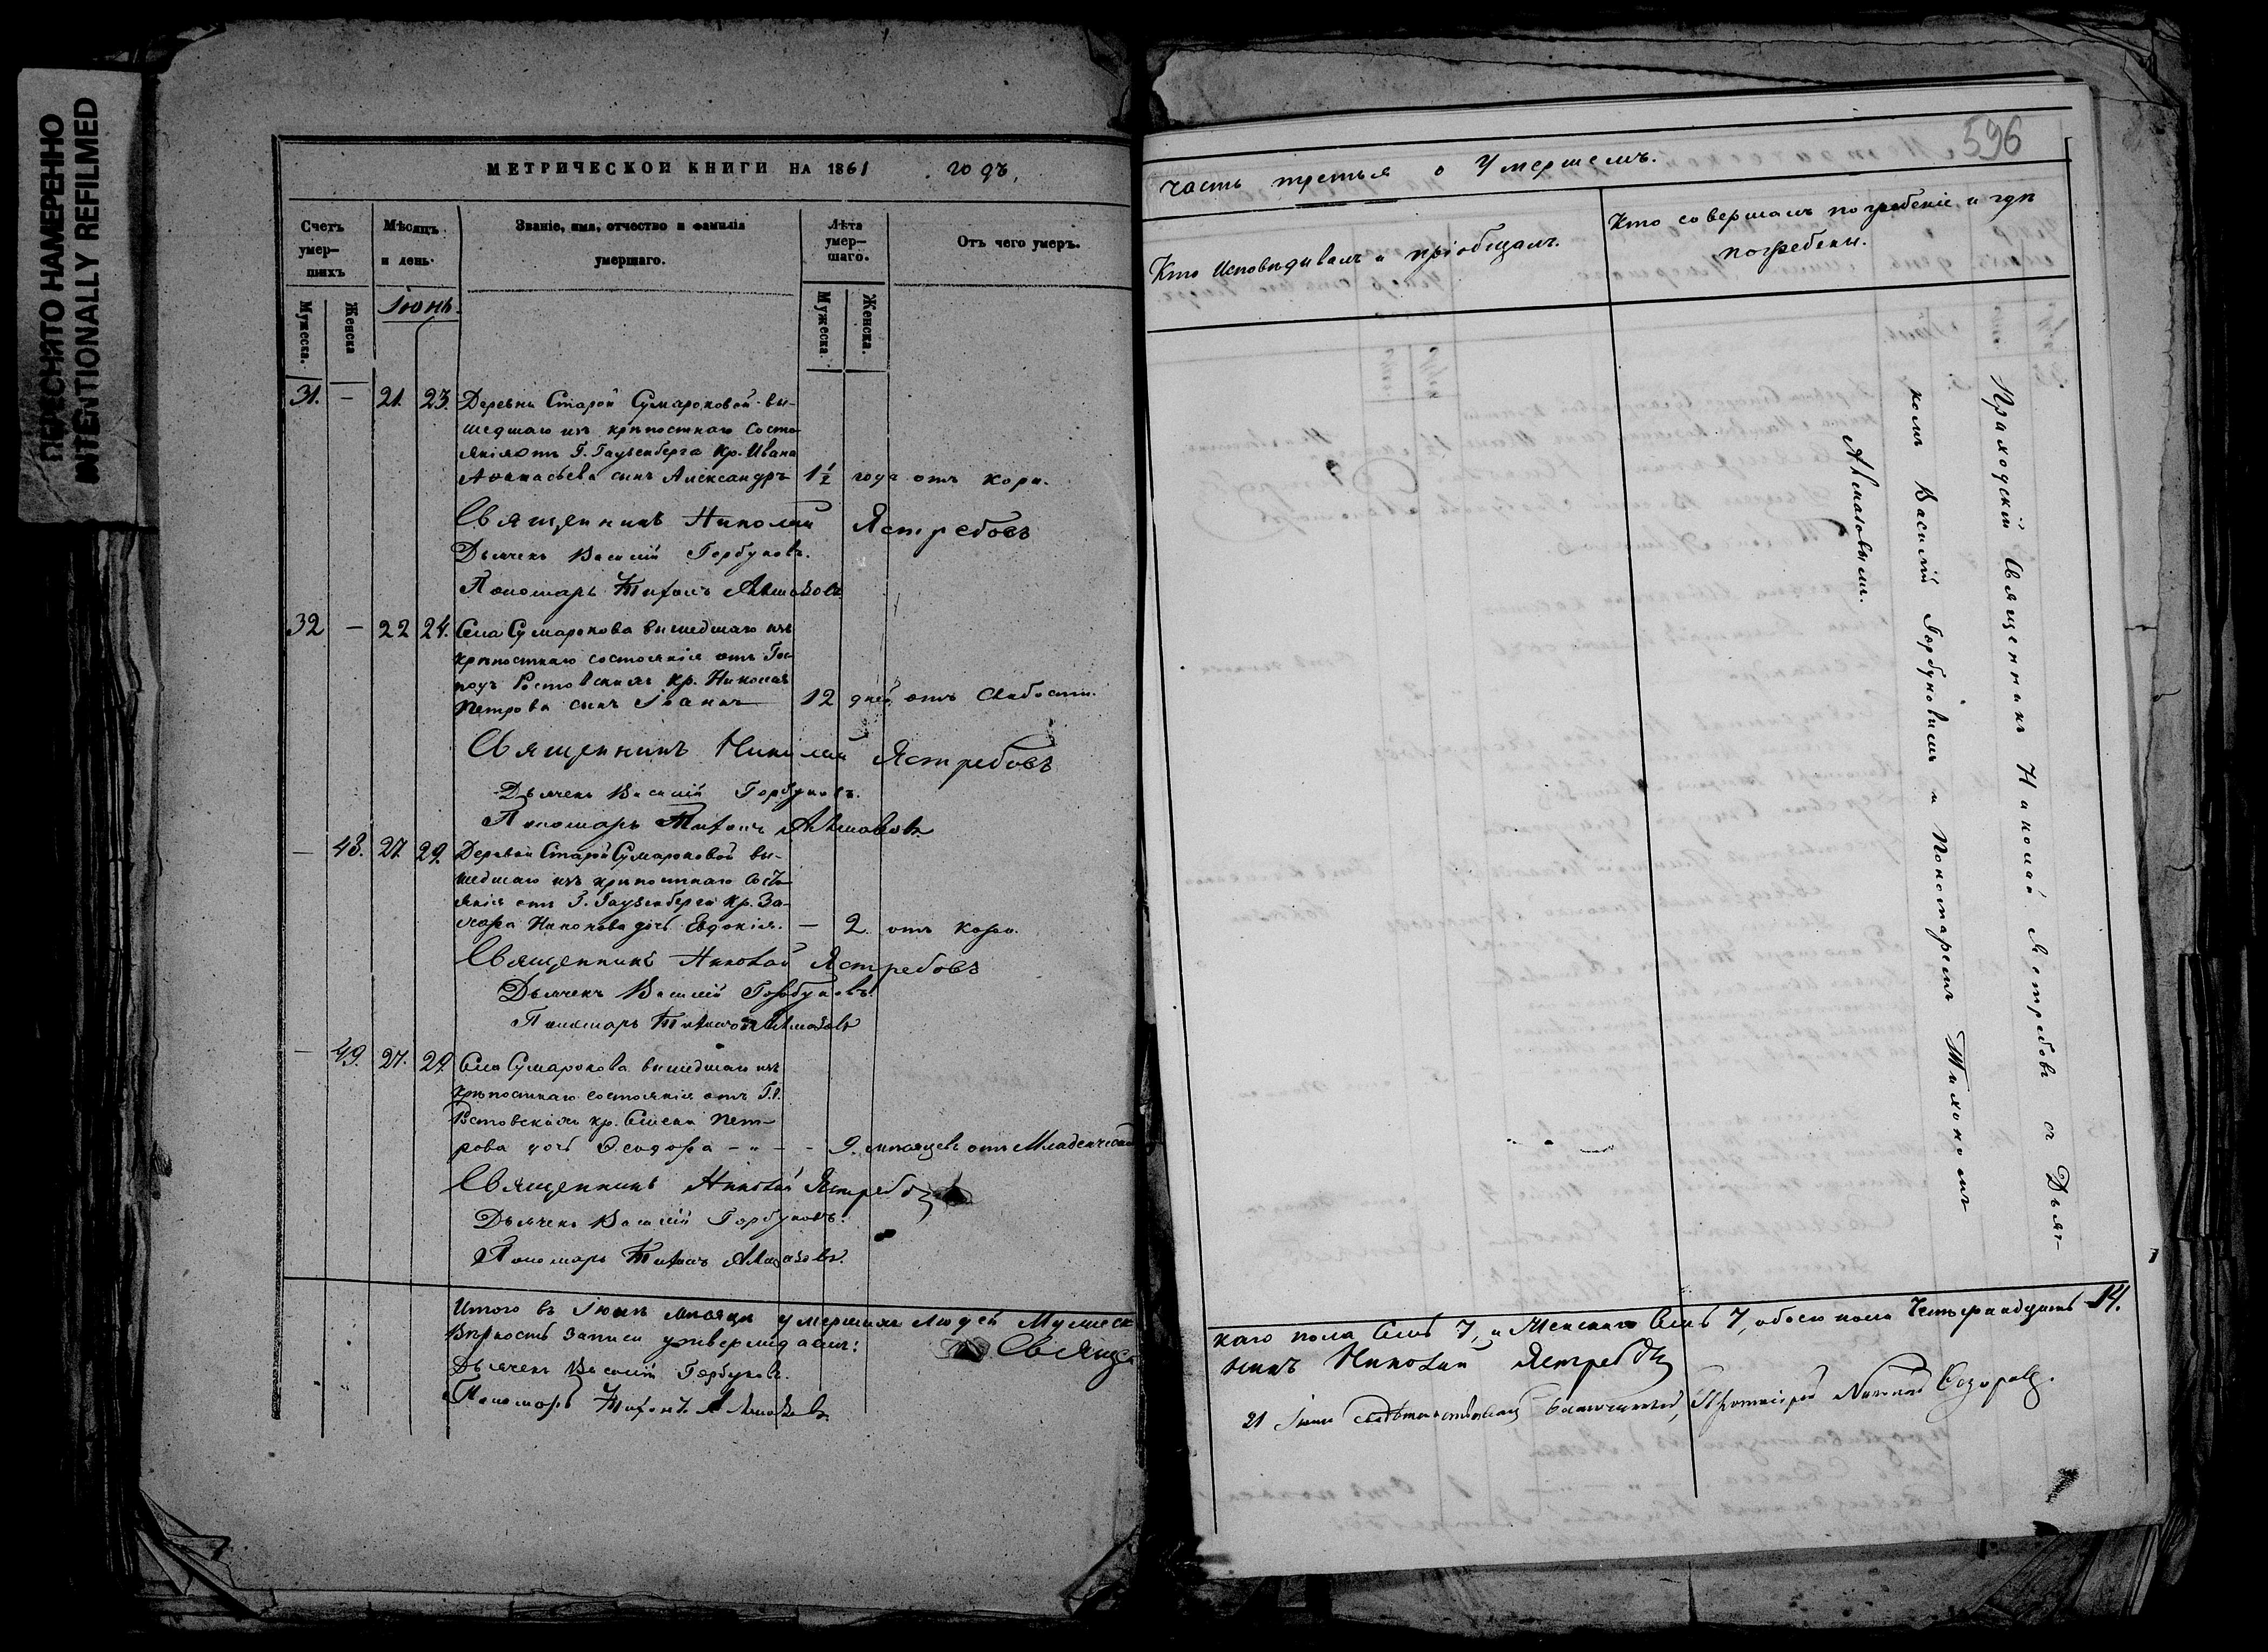 ПЕРЕСНЯТО НАМЕРЕННО
INTENTIONALLY REFILMED
МЕТРИЧЕСКОЙ КНИГИ НА 1861 годъ,
Счетъ умер-шихъ
Мѣсяцъ и день.
Званіе, имя, отчество и фамилія умершаго.
Лѣта умер-шаго.
Отъ чего умеръ.
Мужеска.
Женска
Іюнь.
Мужеска.
Женска.
31. — 21. 23. Деревни Старой Сумароковой вы-
шедшаго изъ крѣпостнаго состо-
янія отъ Г. Гаузенберга Кр. Ивана
Афанасьева сынъ Александръ 1½ года отъ кори.
Священникъ Николай Ястребовъ
Дьячекъ Василій Горбуновъ.
Пономарь Тихонъ
32 — 22 24. Села Сумарокова вышедшаго изъ
крѣпостнаго состоянія отъ Гос-
подъ Ростовскихъ Кр. Николая
Петрова сынъ Іоаннъ 12 дней отъ слабости.
Священникъ Николай Ястребовъ
Дьячекъ Василій Горбуновъ.
Пономарь Тихонъ
— 48. 27. 29. Деревни Старой Сумароковой вы-
шедшаго изъ крѣпостнаго состо-
янія отъ Г. Гаузенберга Кр. За-
хара Никонова дочь Евдокія. — 2. отъ кори.
Священникъ Николай Ястребовъ
Дьячекъ Василій Горбуновъ.
Пономарь Тихонъ
— 49. 27. 29. Села Сумарокова вышедшаго изъ
крѣпостнаго состоянія отъ Г.г.
Ростовскихъ кр. Пет-
рова дочь Ѳеодора — " — - 9. мѣсяцевъ отъ
Священникъ Николай Ястребовъ
Дьячекъ Василій Горбуновъ.
Пономарь Тихонъ
Итого въ Іюнѣ мѣсяцѣ умершихъ людей Мужеск
Вѣрность записи утверждаемъ: Священ
Дьячекъ Василій Горбуновъ.
Пономарь Тихонъ
596
часть третья о Умершемъ.
Кто исповѣдывалъ и пріобщалъ.
Кто совершалъ погребеніе и гдѣ
погребены.
Приходскій Священникъ Николай Ястребовъ съ Дьяч-
комъ Василіемъ Горбуновымъ и Пономаремъ Тихономъ
каго пола семь 7, и Женскаго семь 7, обоего пола Четырнадцать 14.
никъ Николай Ястребовъ
21